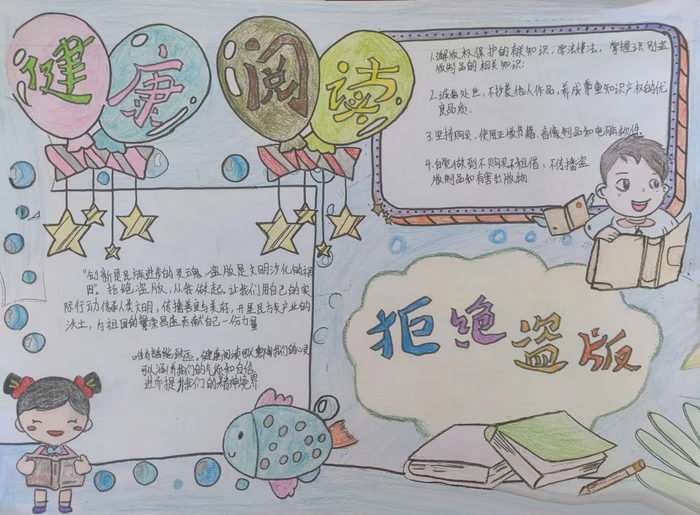 健康阅读
1.版权保护的相关知识，学法懂法，掌握识别盗
版制品的相关知识
2.不抄袭他人作品，养成尊重知识产权的优
良品质.
3.坚持购买、使用正版书籍、音像制品和电脑软件
4.自觉做到不购买不租借，不传播盗
版制品和有害出版物
"创新是民族进步的灵魂，盗版是文明沙化的
拒绝盗版，从我做起，让我们用自己的实
际行动传承人类文明，传播善良与美好，开垦民与产业的
沃土，为祖国的繁荣昌盛贡献自己一份力量
健康阅读可以我们的心灵
可以涵养我们的气质和自信
进而提升我们的精神境界
拒绝盗版